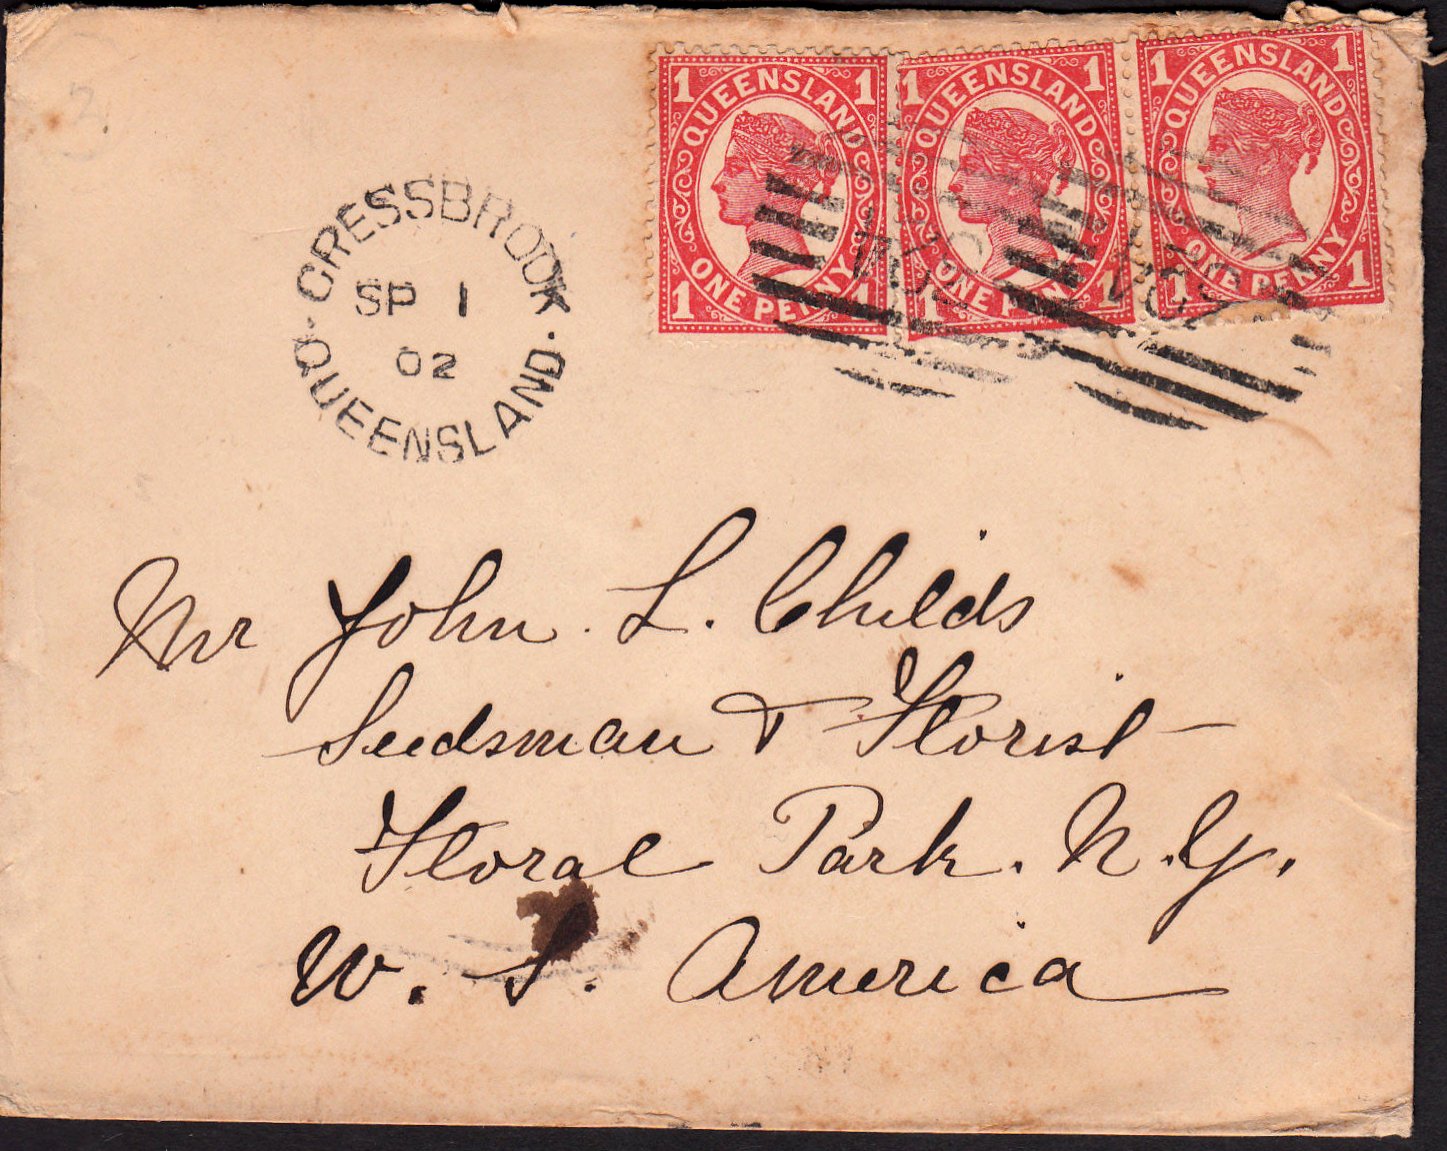 1 QUEENSLAND 1
1 ONE PENNY 1
1 QUEENSLAND 1
1 ONE PENNY 1
1 QUEENSLAND 1
ONE PENNY 1
CRESSBROOK
SP 1
02
QUEENSLAND
Mr John L. Childs
Seedsman & Florist
Floral Park. N.Y.
W. S. America